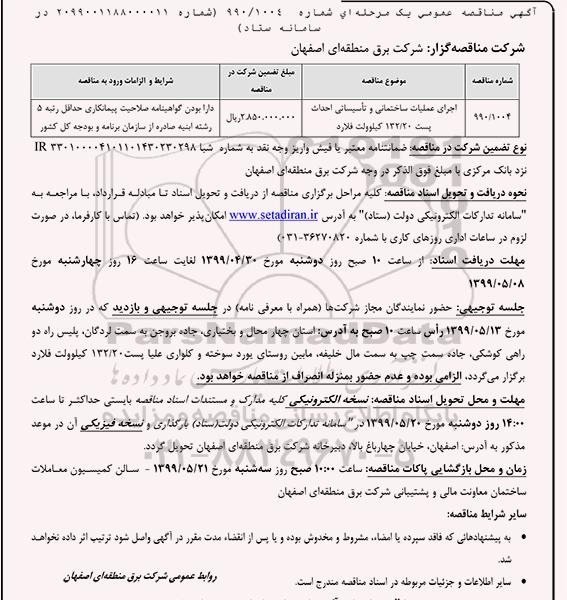 آگهی مناقصه عمومی یک مرحله‌ای شماره ۹۹۰/۱۰۰۴ (شماره ۲۰۹۹۰۰۱۱۸۸۰۰۰۰۱۱ در
سامانه ستاد)
شرکت مناقصه‌گزار: شرکت برق منطقه‌ای اصفهان
شماره مناقصه
موضوع مناقصه
مبلغ تضمین شرکت در مناقصه
شرایط و الزامات ورود به مناقصه
۹۹۰/۱۰۰۴
اجرای عملیات ساختمانی و تأسیساتی احداث
پست ۱۳۲/۲۰ کیلوولت فلارد
۲.۸۵۰.۰۰۰.۰۰۰ریال
دارا بودن گواهینامه صلاحیت پیمانکاری حداقل رتبه ۵
رشته ابنیه صادره از سازمان برنامه و بودجه کل کشور
نوع تضمین شرکت در مناقصه: ضمانتنامه معتبر یا فیش واریز وجه نقد به شماره شبا IR ۳۳۰۱۰۰۰۰۴۱۰۱۱۰۱۴۳۰۲۳۰۲۹۸
نزد بانک مرکزی با مبلغ فوق الذکر در وجه شرکت برق منطقه‌ای اصفهان
نحوه دریافت و تحویل اسناد مناقصه: کلیه مراحل برگزاری مناقصه از دریافت و تحویل اسناد تا مبادله قرارداد، با مراجعه به
"سامانه تدارکات الکترونیکی دولت (ستاد)" به آدرس www.setadiran.ir امکان‌پذیر خواهد بود. (تماس با کارفرما، در صورت
لزوم در ساعات اداری روزهای کاری با شماره ۳۶۲۷۰۸۲۰-۰۳۱)
مهلت دریافت اسناد: از ساعت ۱۰ صبح روز دوشنبه مورخ ۱۳۹۹/۰۴/۳۰ لغایت ساعت ۱۶ روز چهارشنبه مورخ
۱۳۹۹/۰۵/۰۸
جلسه توجیهی: حضور نمایندگان مجاز شرکت‌ها (همراه با معرفی نامه) در جلسه توجیهی و بازدید که در روز دوشنبه
مورخ ۱۳۹۹/۰۵/۱۳ رأس ساعت ۱۰ صبح به آدرس: استان چهار محال و بختیاری، جاده بروجن به سمت لردگان، پلیس راه دو
راهی کوشکی، جاده سمت چپ به سمت مال خلیفه، مابین روستای مورد سوخته و کلواری علیا پست۱۳۲/۲۰ کیلوولت فلارد
برگزار می‌گردد، الزامی بوده و عدم حضور بمنزله انصراف از مناقصه خواهد بود.
مهلت و محل تحویل اسناد مناقصه: نسخه الکترونیکی کلیه مدارک و مستندات اسناد مناقصه بایستی حداکثر تا ساعت
۱۴:۰۰ روز دوشنبه مورخ ۱۳۹۹/۰۵/۲۰ در "سامانه تدارکات الکترونیکی دولت(ستاد) بارگذاری و نسخه فیزیکی آن در موعد
مذکور به آدرس: اصفهان، خیابان چهارباغ بالا، دبیرخانه شرکت برق منطقه‌ای اصفهان تحویل گردد.
زمان و محل بازگشایی پاکات مناقصه: ساعت ۱۰:۰۰ صبح روز سه‌شنبه مورخ ۱۳۹۹/۰۵/۲۱ - سالن کمیسیون معاملات
ساختمان معاونت مالی و پشتیبانی شرکت برق منطقه‌ای اصفهان
سایر شرایط مناقصه:
• به پیشنهادهائی که فاقد سپرده یا امضاء، مشروط و مخدوش بوده و یا پس از انقضاء مدت مقرر در آگهی واصل شود ترتیب اثر داده نخواهد
شد.
• سایر اطلاعات و جزئیات مربوطه در اسناد مناقصه مندرج است.
روابط عمومی شرکت برق منطقه‌ای اصفهان